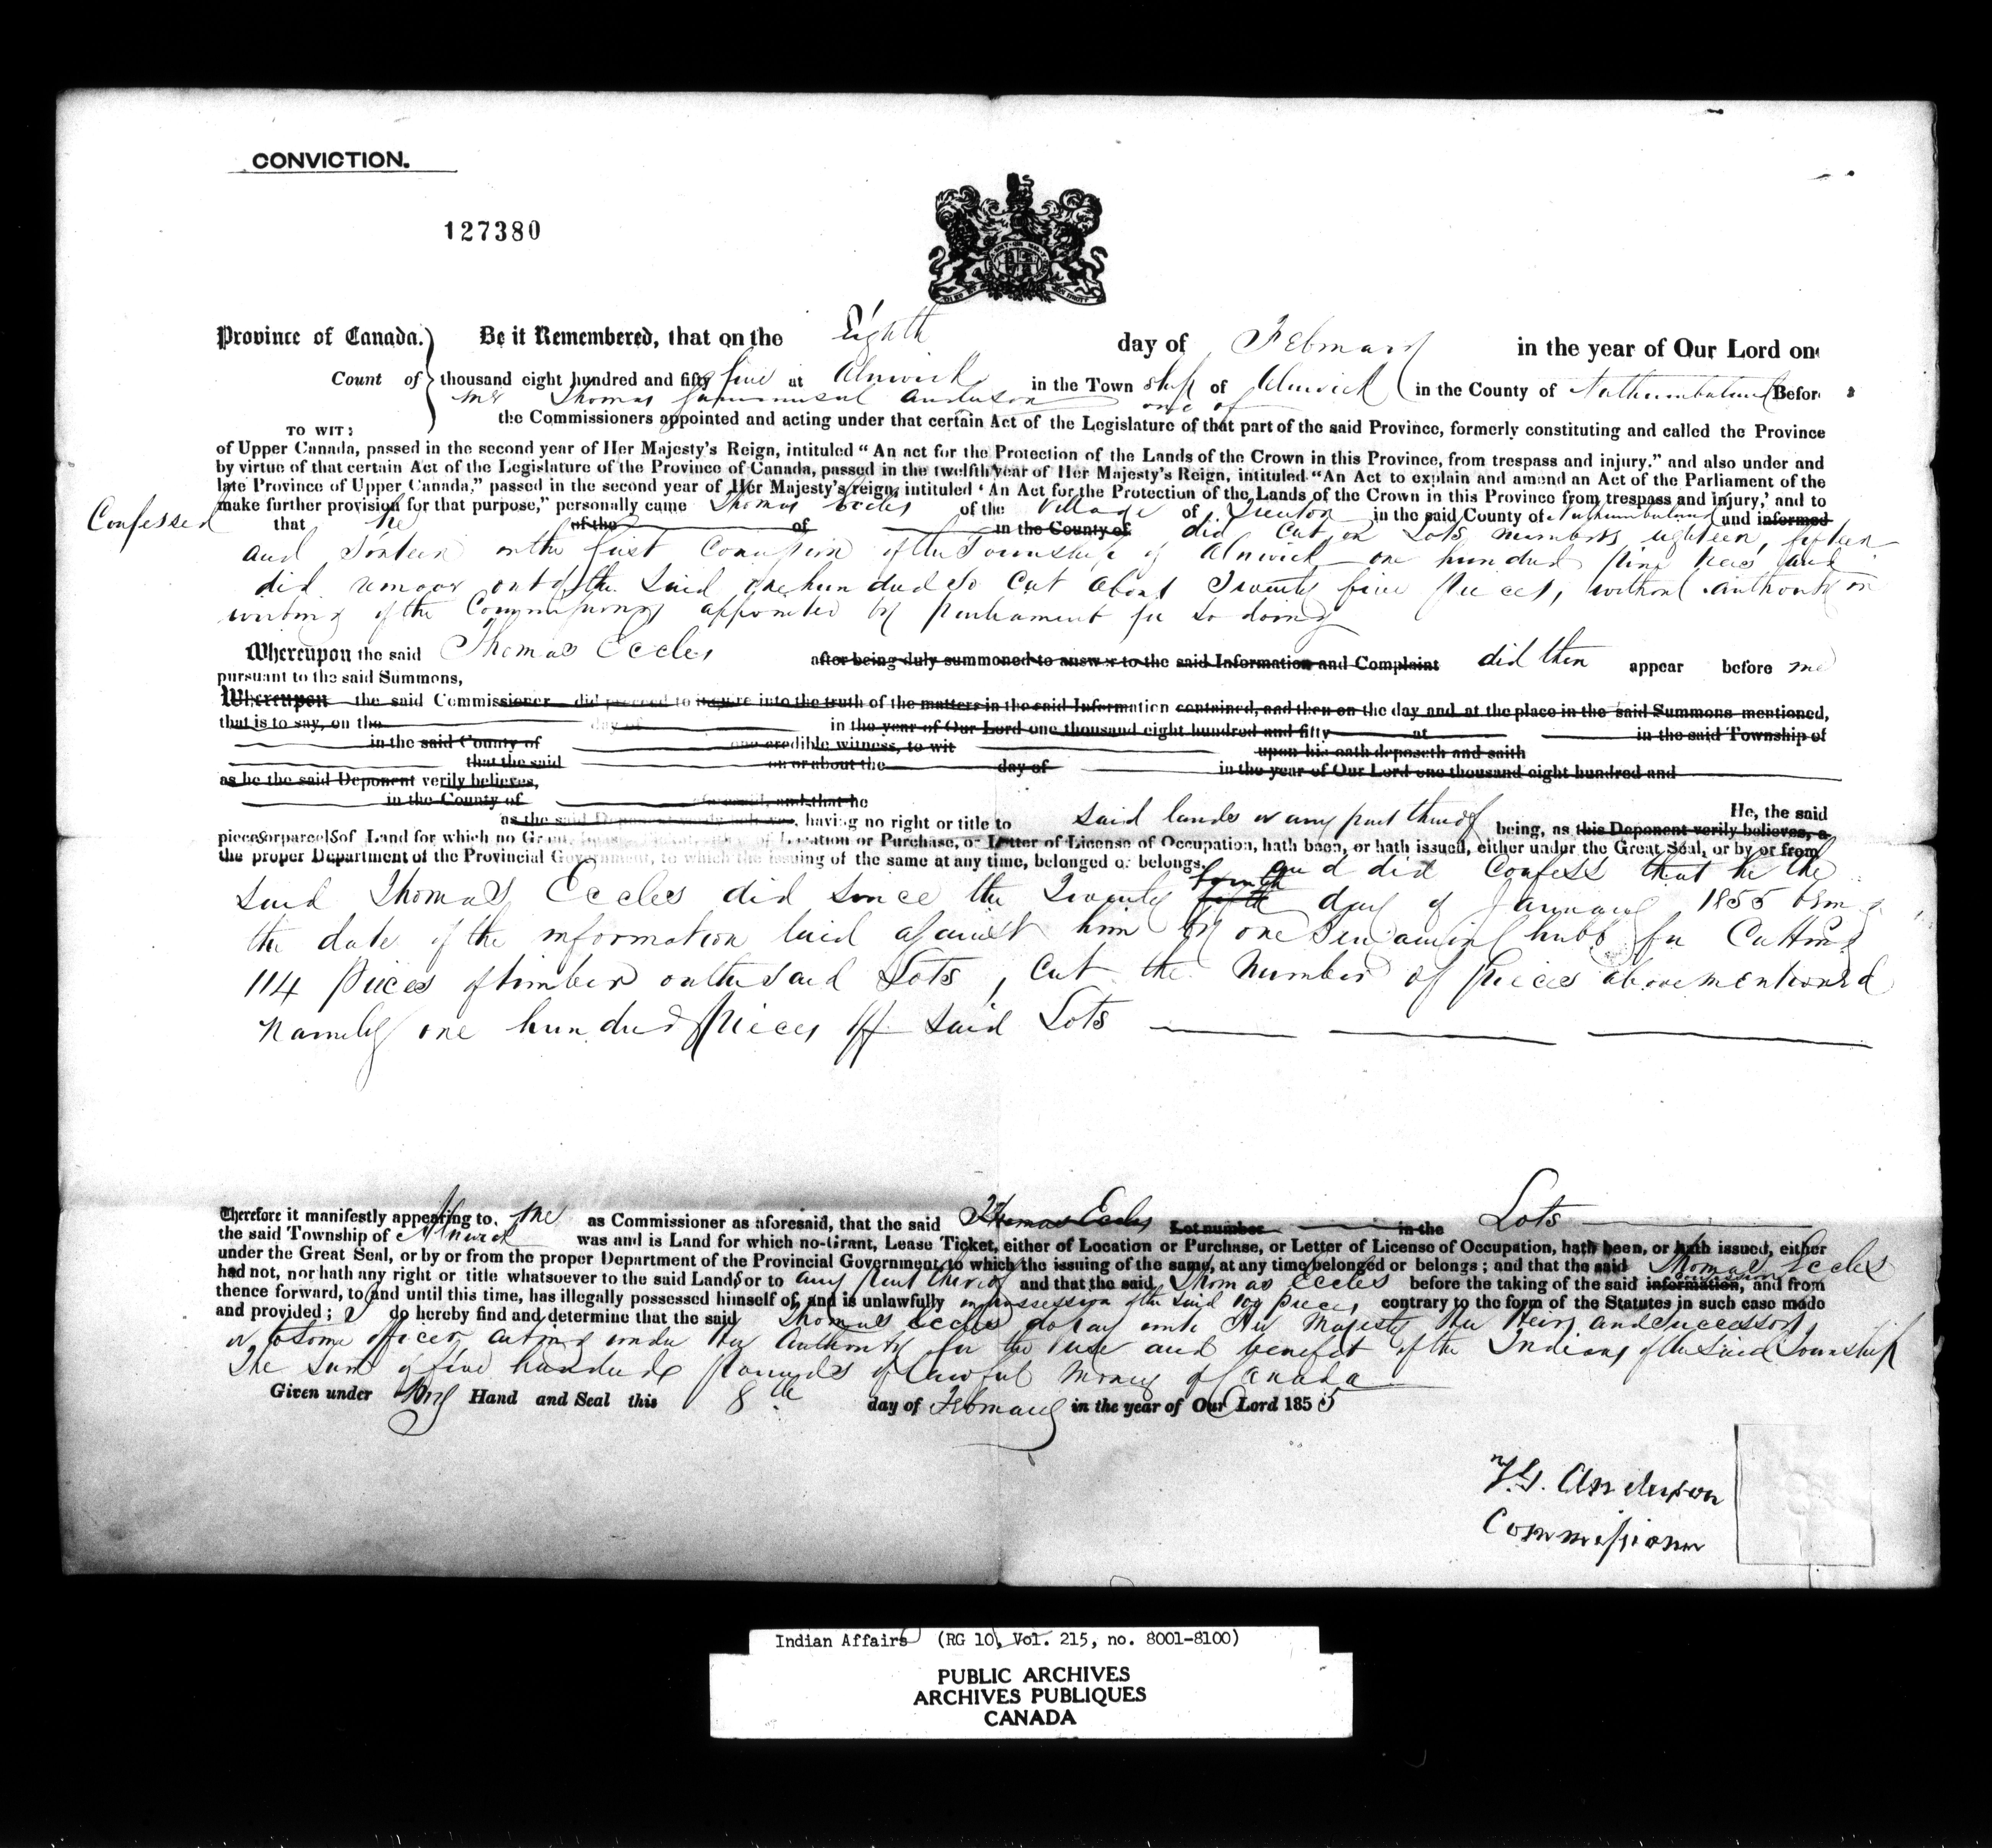 CONVICTION.
127380
Province of Canada. Be it Remembered, that on the Eighth day of February in the year of Our Lord one
Count of thousand eight hundred and fifty five at Alnwick in the Town ship of Alnwick in the County of Northumberland Before
me Thomas Gummersal Anderson one of
the Commissioners appointed and acting under that certain Act of the Legislature of that part of the said Province, formerly constituting and called the Province
TO WIT:
of Upper Canada, passed in the second year of Her Majesty's Reign, intituled "An act for the Protection of the Lands of the Crown in this Province, from trespass and injury." and also under and
by virtue of that certain Act of the Legislature of the Province of Canada, passed in the twelfth year of Her Majesty's Reign, intituled "An Act to explain and amend an Act of the Parliament of the
late Province of Upper Canada," passed in the second year of Her Majesty's reign, intituled 'An Act for the Protection of the Lands of the Crown in this Province from trespass and injury,' and to
make further provision for that purpose," personally came Thomas Eccles of the Village of Trenton in the said County of Northumberland and informed
Confessed that he of the of in the County of did cut on Lots numbers eighteen, fifteen
and on the first Concession of the Township of Alnwick one hundred pine trees and
did remove out of the said one hundred so cut about Twenty five pieces, without authority in
writing of the Commissioners appointed by parliament for so doing
Whereupon the said Thomas Eccles after being duly summoned to answer to the said Information and Complaint did then appear before me
pursuant to the said Summons,
Whereupon the said Commissioner did proceed to inquire into the truth of the matters in the said Information contained, and then on the day and at the place in the said Summons mentioned,
that is to say, on the day of in the year of Our Lord one thousand eight hundred and fifty at in the said Township of
in the said County of one credible witness, to wit upon his oath deposeth and saith
that the said on or about the day of in the year of Our Lord one thousand eight hundred and
as he the said Deponent verily believes,
in the County of and that he
He, the said
as the said having no right or title to said lands or any part thereof being, as this Deponent verily believes, a
pieces or parcels of Land for which no Grant, of Location or Purchase, or Letter of License of Occupation, hath been, or hath issued, either under the Great Seal, or by or from
the proper Department of the Provincial Government, to which the issuing of the same at any time, belonged or belongs. and did Confess that he the
said Thomas Eccles did since the Twenty fifth fourth day of January 1855 being
the date of the information laid against him by one Benjamin Chubb for Cutting
114 pieces of timber on the said Lots, cut the number of pieces above mentioned
namely one hundred pieces off said Lots
Therefore it manifestly appearing to me as Commissioner as aforesaid, that the said Thomas Eccles Lot number in the Lots
the said Township of Alnwick was and is Land for which no Grant, Lease Ticket, either of Location or Purchase, or Letter of License of Occupation, hath been, or hath issued, either
under the Great Seal, or by or from the proper Department of the Provincial Government, to which the issuing of the same, at any time belonged or belongs; and that the said Thomas Eccles
had not, nor hath any right or title whatsoever to the said Lands or to any part thereof and that the said Thomas Eccles before the taking of the said information, and from
thence forward, to and until this time, has illegally possessed himself of, and is unlawfully in possession of the said 100 pieces contrary to the form of the Statutes in such case made
and provided; I do hereby find and determine that the said Thomas Eccles do pay unto Her Majesty Her Heirs and Successors
or to some officer acting under Her Authority for the use and benefit of the Indians of the said Township
The sum of five hundred pounds of lawful money of Canada
Given under my Hand and Seal this 8th day of February in the year of Our Lord 1855
T.G. Anderson
Commissioner
Indian Affairs (RG 10, Vol. 215, no. 8001-8100)
PUBLIC ARCHIVES
ARCHIVES PUBLIQUES
CANADA